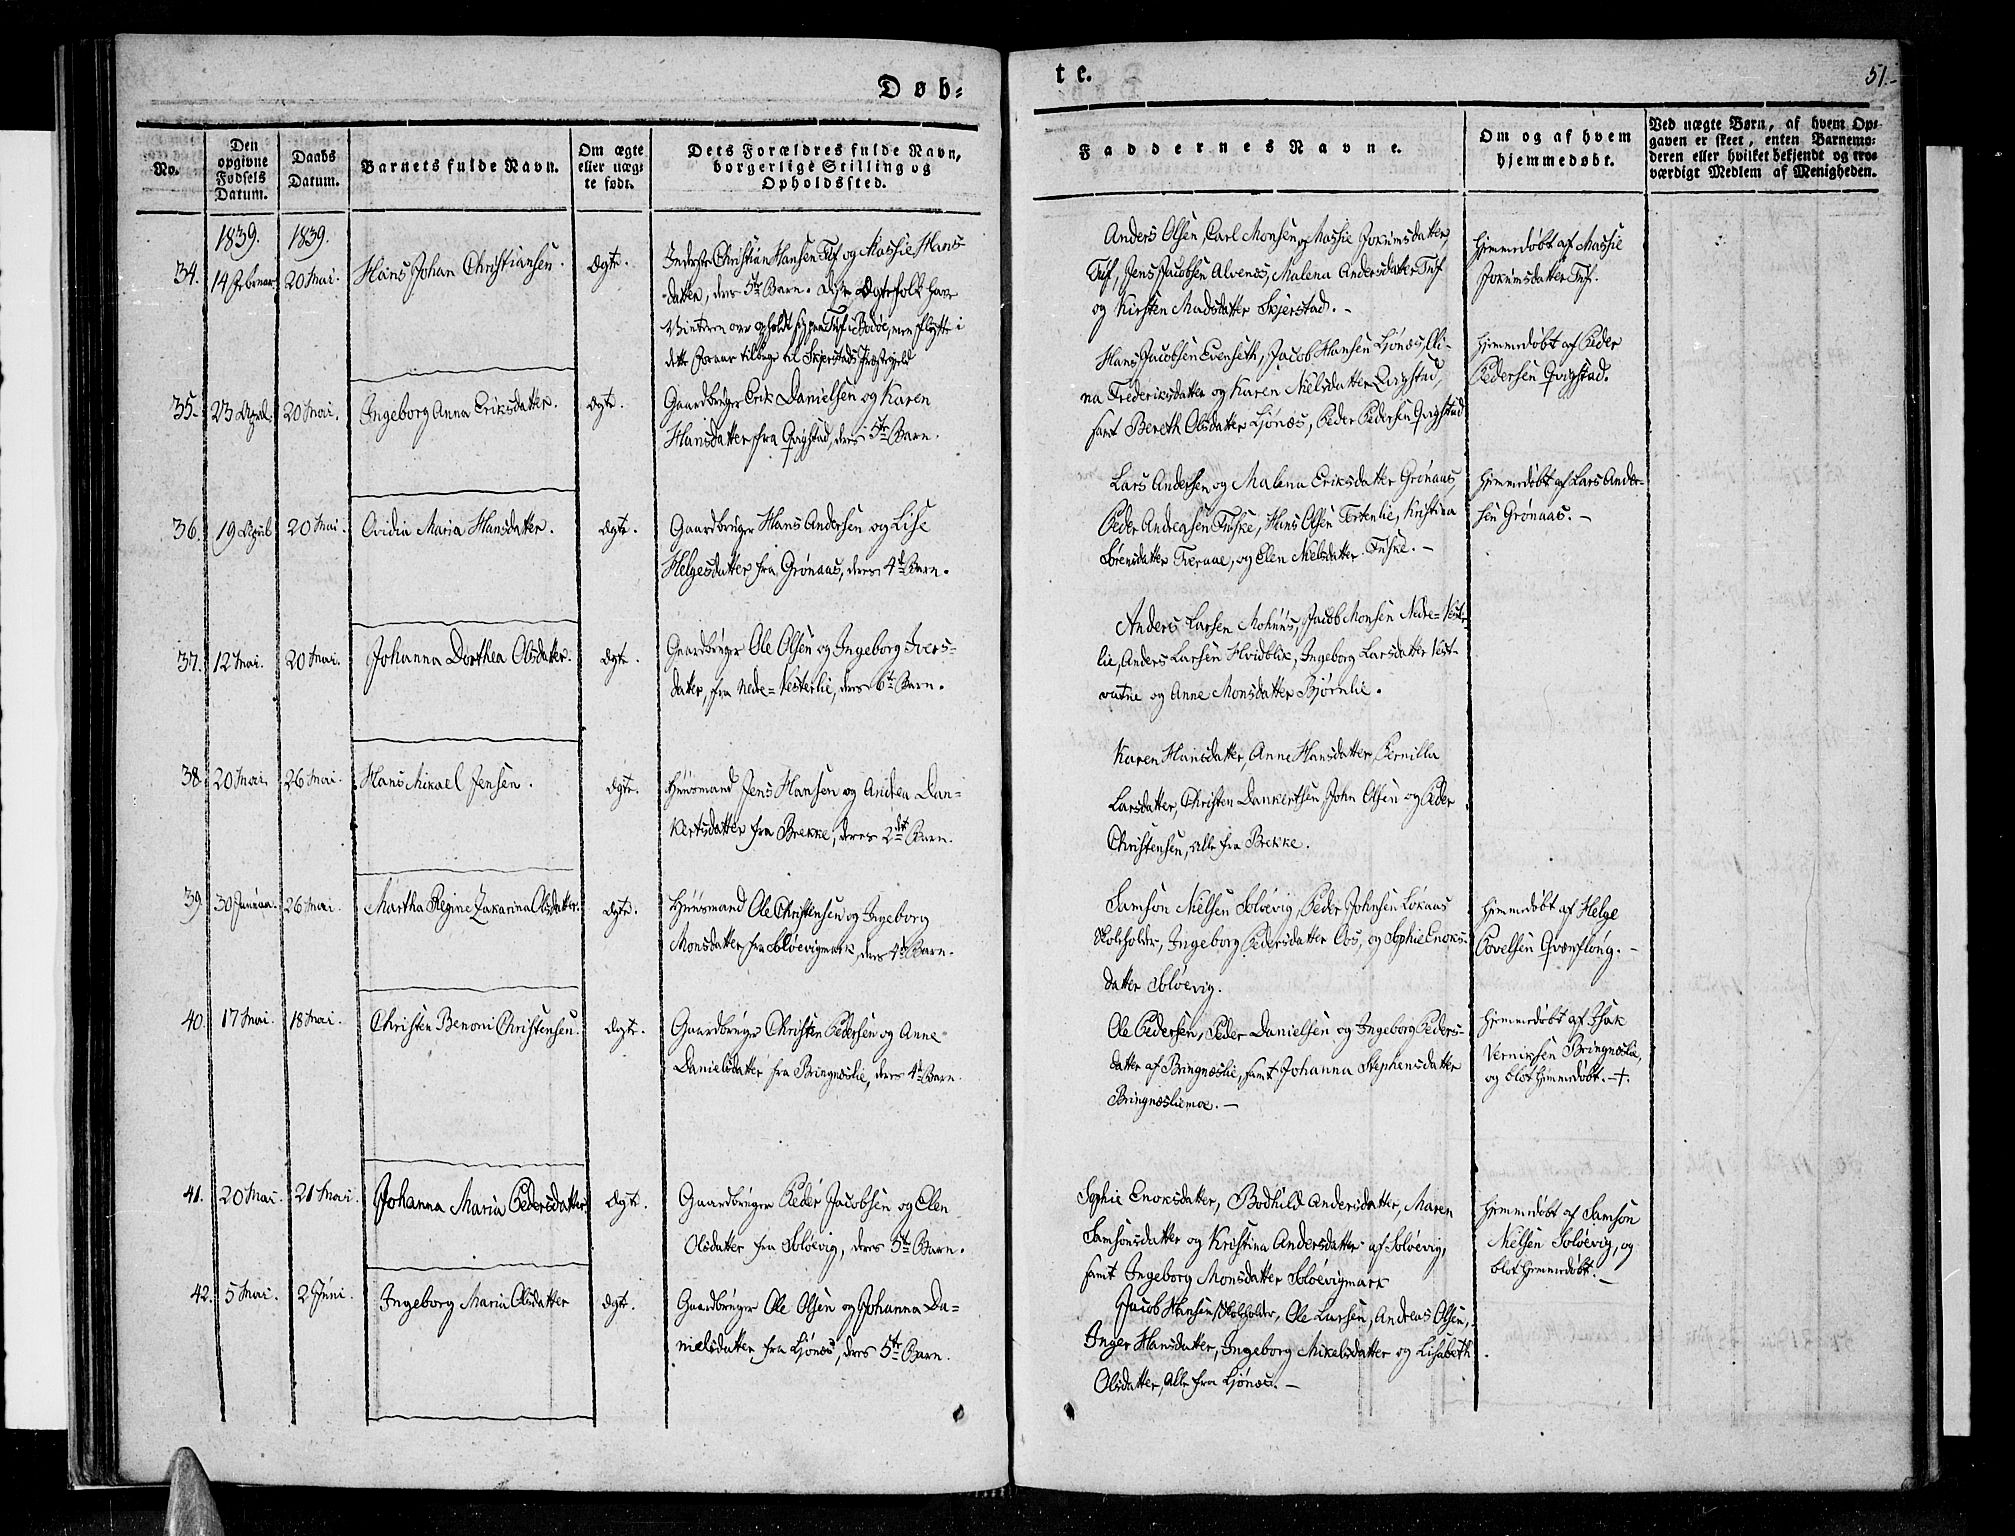 Døb-
No.
Den opgivne Fødsels Datum.
Daabs Datum.
Barnets fulde Navn.
Om ægte eller uægte født.
Dets Forældres fulde Navn, borgerlige Stilling og Opholdssted.
1839. 1839.
34. 14 Februar 20 Mai. Hans Johan Christiansen. Ægte.
Inderst Christian Hansen Tuf og Massie Hans-
datter, deres 5te Barn. Disse Ægtefolk have
Vinteren over opholdt sig paa Tuf i Bodøe, men flytte i
dette Foraar tilbage til Skjerstads Præstegjeld
35. 23 April. 20 Mai. Ingeborg Anna Eriksdatter. Ægte.
Gaardbruger Erik Danielsen og Karen
Hansdatter fra Qvigstad, deres 5te Barn.
36. 19 April 20 Mai. Ovidia Maria Hansdatter. Ægte.
Gaardbruger Hans Andersen og Lise
Helgesdatter fra Grønaas, deres 4de Barn.
37. 12 Mai. 20 Mai. Johanna Dorthea Olsdatter. Ægte.
Gaardbruger Ole Olsen og Ingeborg Ivers-
datter, fra Nedre-Vesterlie, deres 6te Barn.
38. 20 Mai. 26 Mai. Hans Mikael Jensen. Ægte.
Huusmand Jens Hansen og Andrea Dan-
kertsdatter fra Brekke, deres 2det Barn.
39. 30 Januar. 26 Mai. Martha Regine Zakarina Olsdatter. Ægte.
Huusmand Ole Christensen og Ingeborg
Monsdatter fra Soløevigmark, deres 4de Barn.
40. 17 Mai. 18 Mai. Christen Benoni Christensen. Ægte.
Gaardbruger Christen Pedersen og Anne
Danielsdatter fra Bringnæslie, deres 4de Barn.
41. 20 Mai. 21 Mai. Johanna Maria Pedersdatter Ægte.
Gaardbruger Peder Jacobsen og Elen
Olsdatter fra Soløevig, deres 5te Barn.
42. 5 Mai. 2 Juni. Ingeborg Maria Olsdatter Ægte.
Gaardbruger Ole Olsen og Johanna Da-
nielsdatter fra Ljønæs, deres 5te Barn.
te.
51.
Faddernes Navne.
Om og af hvem hjemmedøbt.
Ved uægte Børn, af hvem Op-
gaven er skeet, enten Barnemo-
deren eller hvilket bekjendt og tro-
værdigt Medlem af Menigheden.
Anders Olsen, Carl Monsen og Massie Jokumsdatter,
Tuf, Jens Jacobsen Alvenæs, Malena Andersdatter Tuf
og Kirsten Madsdatter Skjerstad. -
Hjemmedøbt af Massie
Jokumsdatter Tuf.
Hans Jacobsen Evenseth, Jacob Hansen Ljønæs, Eli-
na Frederiksdatter og Karen Nielsdatter Qvigstad,
samt Bereth Olsdatter Ljønæs, Peder Pedersen Qvigstad
Hjemmedøbt af Peder
Pedersen Qvigstad.
Lars Andersen og Malena Eriksdatter Grønaas,
Peder Andreasen Fuske, Hans Olsen Tortenlie, Kristina
Sørensdatter Tveraae, og Elen Nielsdatter Fuske. -
Hjemmedøbt af Lars Ander-
sen Grønaas. -
Anders Larsen Mohuus, Jacob Monsen Nedre-Vester-
lie, Anders Larsen Hvidblik, Ingeborg Larsdatter Vest-
vatne og Anne Monsdatter Bjørnlie.
Karen Hansdatter, Anne Hansdatter, Pernilla
Larsdatter, Christen Dankertsen, John Olsen og Peder
Christensen, alle fra Brekke.
Samson Nielsen Soløevig, Peder Johnsen Løkaas
Skoleholder, Ingeborg Pedersdatter Oos, og Sophie Enoks-
datter Soløevig.
Hjemmedøbt af Helge
Povelsen Qvænflong. -
Ole Pedersen, Peder Danielsen og Ingeborg Peders-
datter af Bringnæslie, samt Johanna Stephensdatter
Bringnæsliemoe. -
Hjemmedøbt af Isak
Verniksen Bringnæslie,
og blot hjemmedøbt. - +.
Sophie Enoksdatter, Bodhild Andersdatter, Maren
Samsonsdatter og Kristina Andersdatter af Soløevig,
samt Ingeborg Monsdatter Soløevigmark
Hjemmedøbt af Samson
Nielsen Soløevig, og
blot hjemmedøbt. -
Jacob Hansen, Skoleholder, Ole Larsen, Andreas Olsen,
Inger Hansdatter, Ingeborg Mikelsdatter og Lisabeth
Olsdatter, alle fra Ljønæs. -